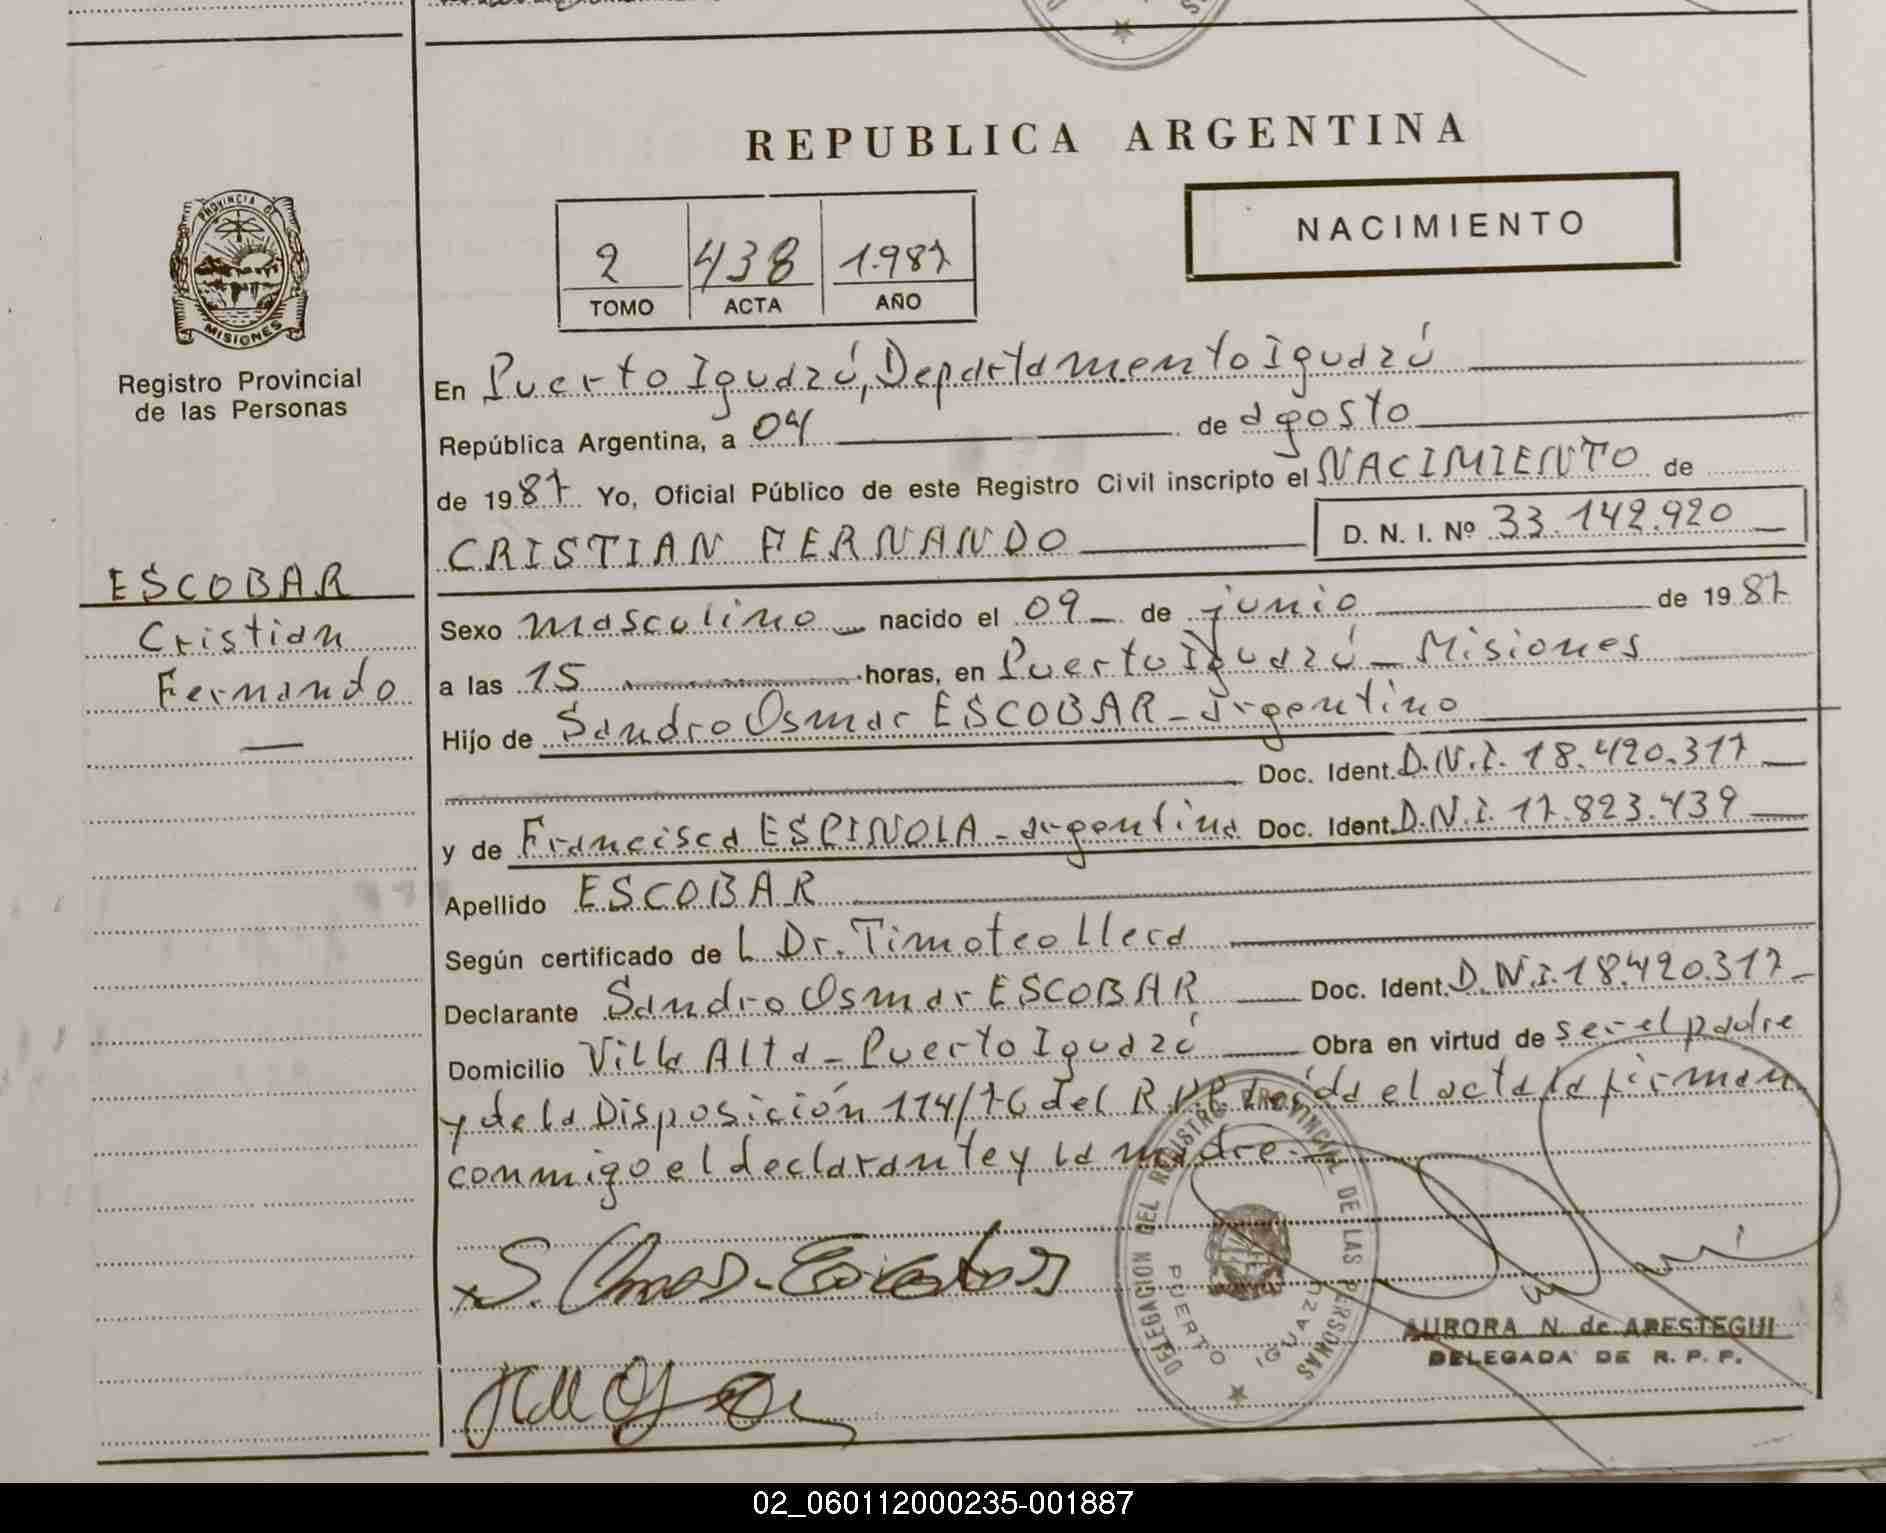 REPUBLICA ARGENTINA
NACIMIENTO
2 438 1.987
TOMO ACTA AÑO
PROVINCIA DE
MISIONES
Registro Provincial
de las Personas
ESCOBAR
Cristian
Fernando
En Puerto Iguazú, Departamento Iguazú
República Argentina, a 04 de agosto
de 1987 Yo, Oficial Público de este Registro Civil inscripto el NACIMIENTO de
CRISTIAN FERNANDO D. N. I. Nº 33.142.920
Sexo masculino nacido el 09 de junio de 1987
a las 15 horas, en Puerto Iguazú - Misiones
Hijo de Sandro Osmar ESCOBAR - argentino
Doc. Ident. D.N.I. 18.420.317
y de Francisca ESPINOLA - argentina Doc. Ident. D.N.I. 17.823.439
Apellido ESCOBAR
Según certificado de L Dr. Timoteo Llera
Declarante Sandro Osmar ESCOBAR Doc. Ident. D.N.I. 18.420.317
Domicilio Villa Alta - Puerto Iguazú Obra en virtud de ser el padre
y de la Disposición 114/76 del R.P.P. Leída el acta la firman
conmigo el declarante y la madre.-
DELEGACION DEL REGISTRO PROVINCIAL DE LAS PERSONAS
PUERTO IGUAZU
AURORA N. de ARESTEGUI
DELEGADA DE R. P. P.
02_060112000235-001887